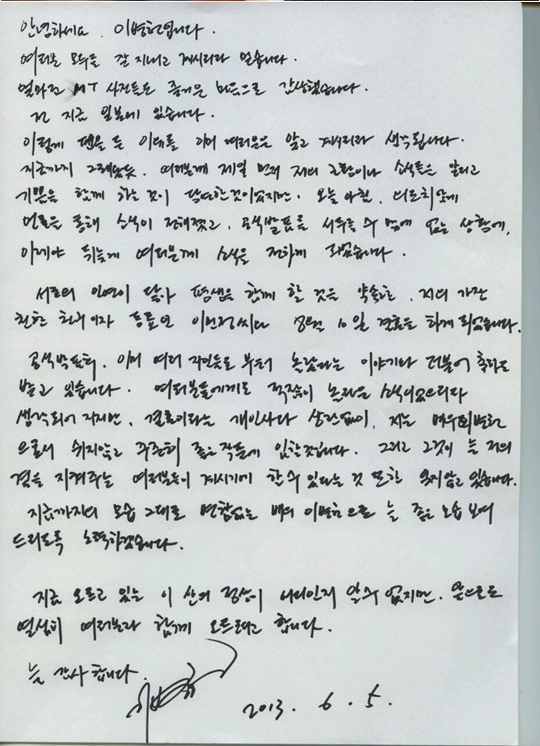 안녕하세요. 이병헌입니다.
여러분 모두들 잘 지내고 계시리라 믿습니다.
얼마전 MT 사진들도 즐거운 마음으로 감상했습니다.
전 지금 일본에 있습니다.
이렇게 펜을 든 이유를 이미 여러분은 알고 계시리라 생각됩니다.
지금까지 그래왔듯, 여러분께 제일 먼저 저의 근황이나 소식들을 알리고
기쁨을 함께 하는 것이 당연한것이었지만, 오늘 아침, 의도치않게
언론을 통해 소식이 전해졌고, 공식발표를 서두를 수 밖에 없는 상황에,
이제야 뒤늦게 여러분께 소식을 전하게 되었습니다.
서로의 인연이 닿아 평생을 함께 할 것을 약속한, 저의 가장
친한 친구이자 동료인 이민정씨와 8월 10일 결혼을 하게 되었습니다.
공식발표후, 이미 여러 지인들로 부터 놀랐다는 이야기와 더불어 축하를
받고 있습니다. 여러분들에게도 적잖이 놀라운 소식이었으리라
생각되어 지지만, 결혼이라는 개인사와 상관없이, 저는 배우 이병헌
으로서 쉬지않고 꾸준히 좋은 작품에 임할것입니다. 그리고 그것이 늘 저의
곁을 지켜주는 여러분들이 계시기에 할 수 있다는 것 또한 잊지않고 있습니다.
지금까지의 모습 그대로 변함없는 배우 이병헌으로 늘 좋은 모습 보여
드리도록 노력하겠습니다.
지금 오르고 있는 이 산의 정상이 어디인지 알수 없지만, 앞으로도
열심히 여러분과 함께 오르려고 합니다.
늘 감사합니다.
2013. 6. 5.